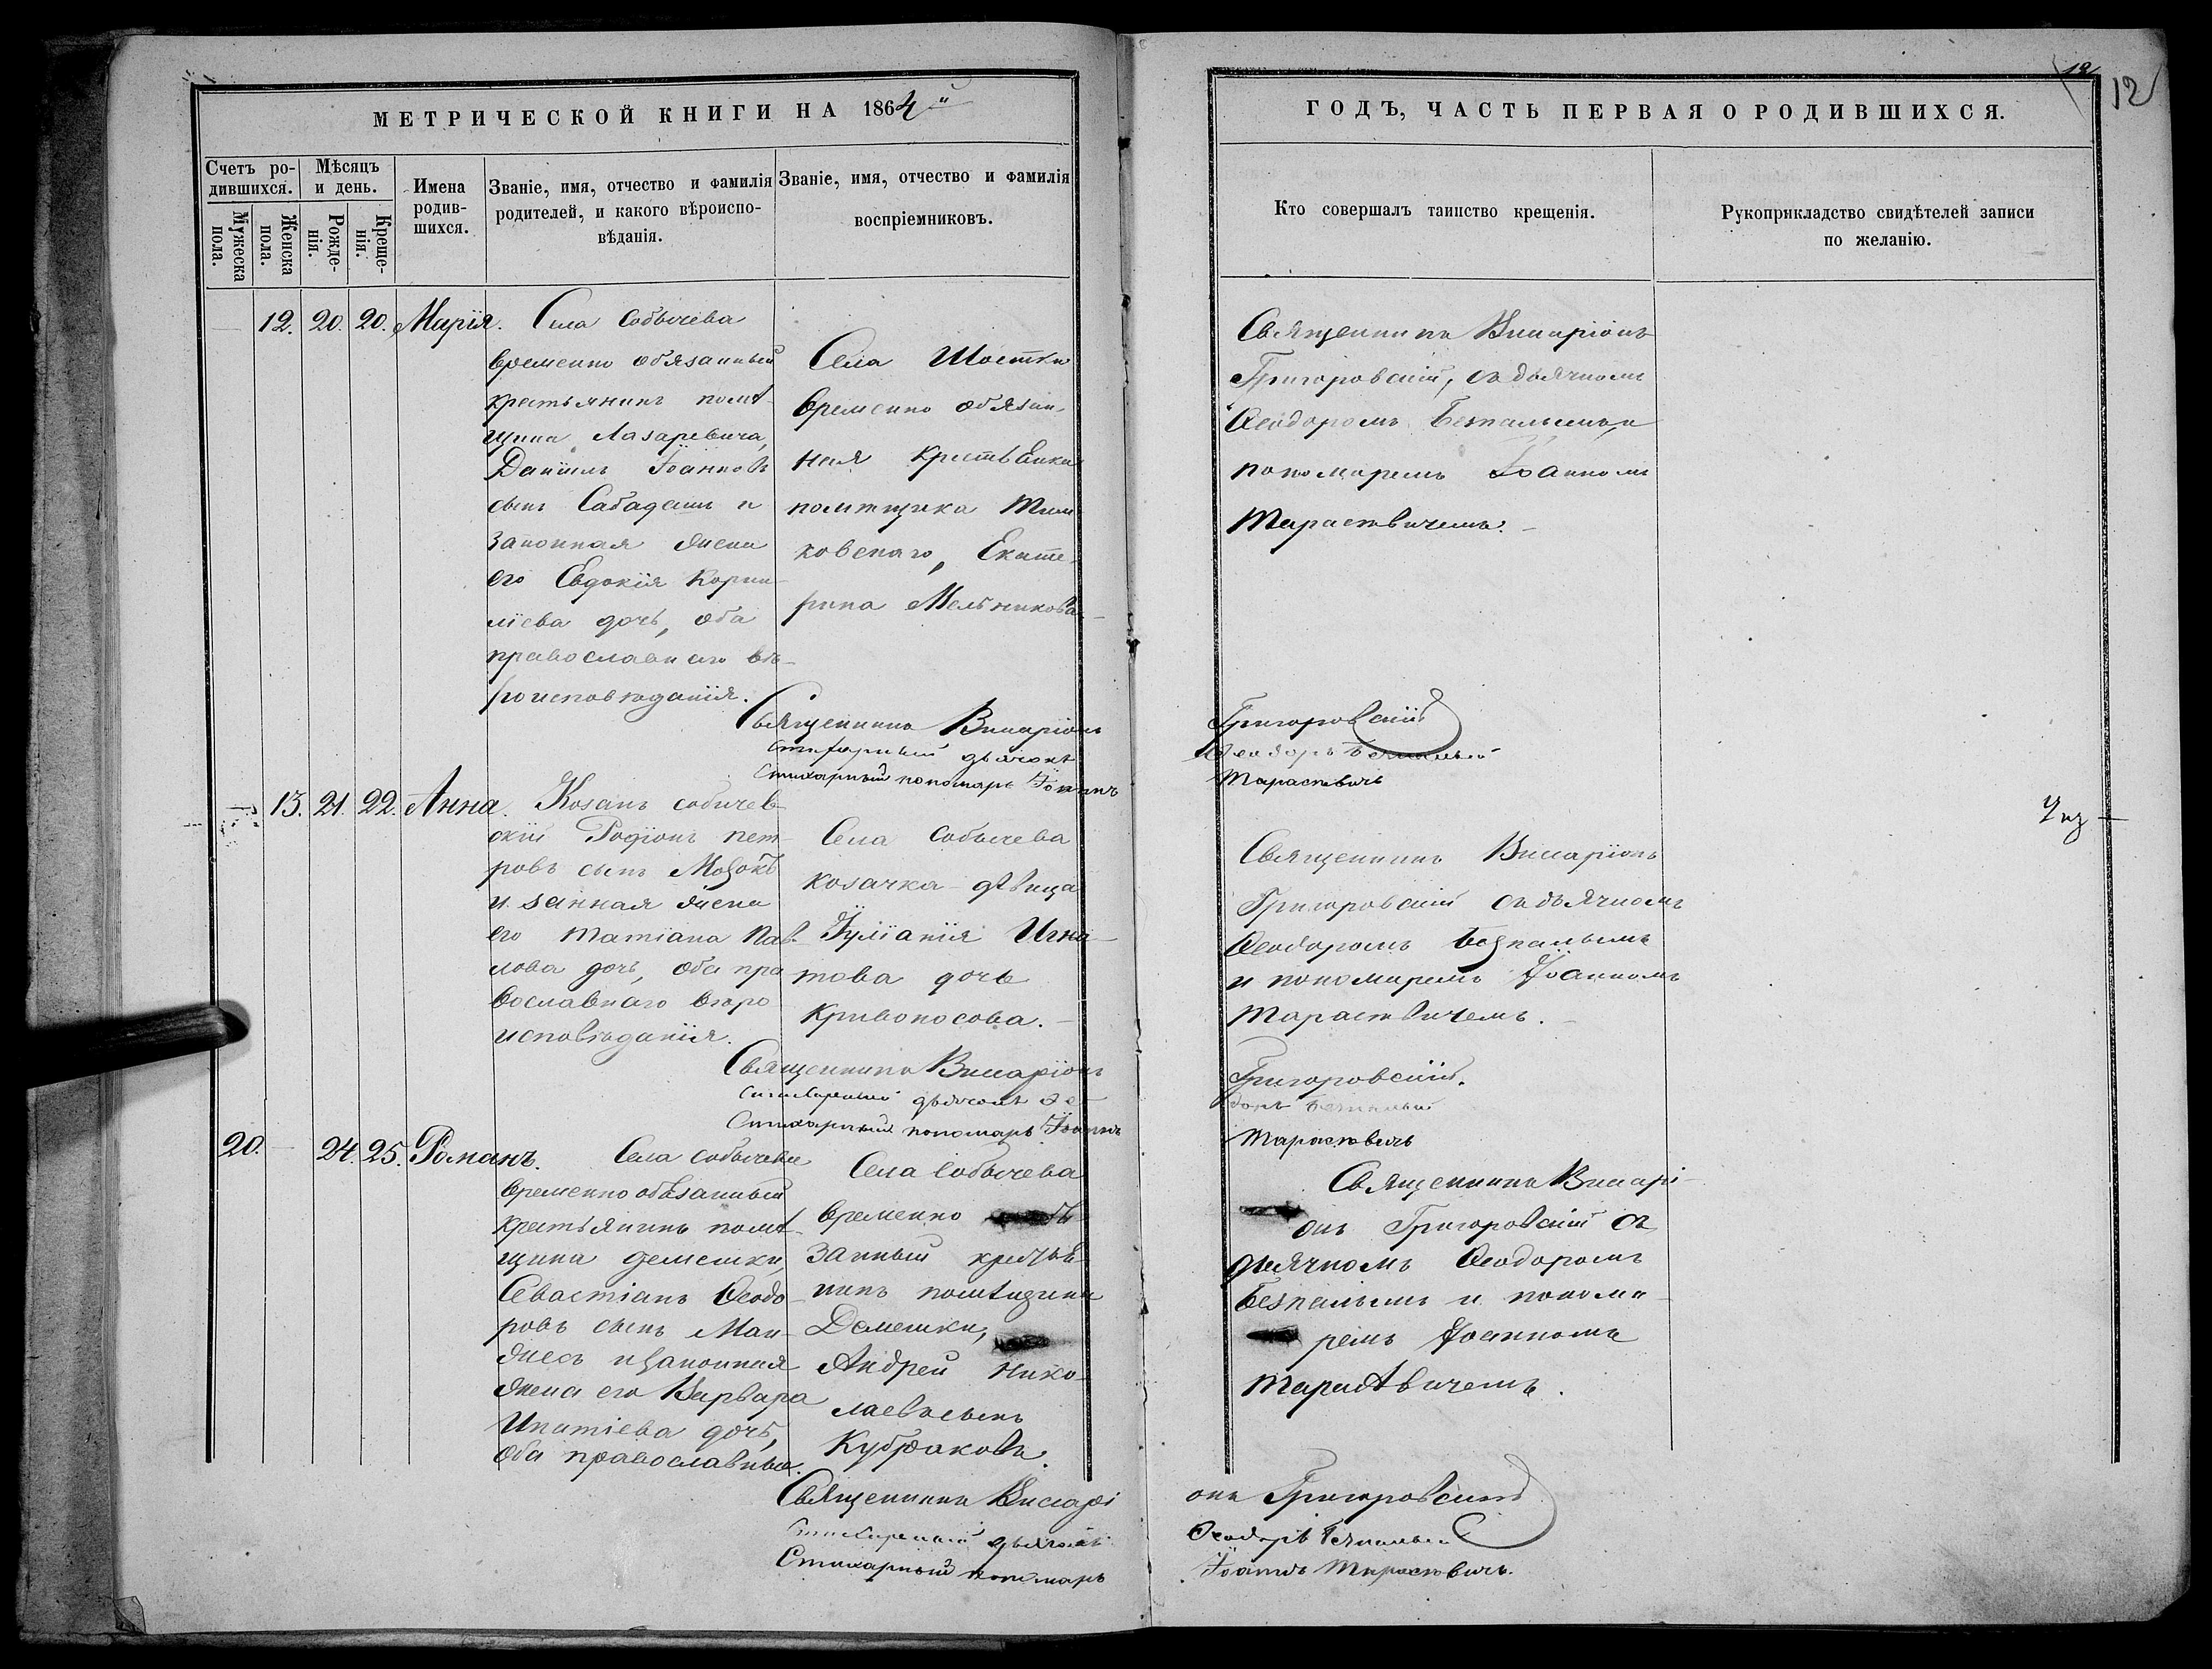 МЕТРИЧЕСКОЙ КНИГИ НА 1864й
Счетъ ро-
дившихся.
Мужеска
пола.
Женска
пола.
Мѣсяцъ
и день.
Рожде-
нія.
Креще-
нія.
Имена
родив-
шихся.
Званіе, имя, отчество и фамилія
родителей, и какого вѣроиспо-
вѣданія.
Званіе, имя, отчество и фамилія
воспріемниковъ.
12
12
ГОДЪ, ЧАСТЬ ПЕРВАЯ О РОДИВШИХСЯ.
Кто совершалъ таинство крещенія.
Рукоприкладство свидѣтелей записи
по желанію.
12. 20. 20. Марія.
Села Собычева
временно обязанный
крестьянинъ помѣ-
щика Лазаревича,
Даніилъ Іоанновъ
сынъ Сабадашъ и
законная жена
его Евдокія Корни-
ліева дочь, оба
православнаго вѣ-
роисповѣданія.
Села Шостки
временно обязан-
ная крестьянка
помѣщика
ковскаго, Екате-
рина Мельникова
Священникъ Виссаріонъ
Григоровскій, съ дьячкомъ
Ѳеодоромъ Безпалымъ и
пономаремъ Іоанномъ
Тарасѣвичемъ.
Священникъ Виссаріонъ Григоровскій
Стихарный дьячокъ Ѳеодоръ Безпалый
Стихарный пономарь Іоаннъ Тарасѣвичъ
13. 21. 22. Анна.
Козакъ собичев-
скій Родіонъ Пет-
ровъ сынъ Мозокъ
и занная жена
его Татіана Пав-
лова дочь, оба пра
вославнаго вѣро
исповѣданія.
Села Собычева
козачка дѣвица
Іуліанія Игна-
това дочь
Кривоносова.
Священникъ Виссаріонъ
Григоровскій съ дьячкомъ
Ѳеодоромъ Безпалымъ
и пономаремъ Іоанномъ
Тарасѣвичемъ.
Священникъ Виссаріонъ Григоровскій.
Стихарный дьячокъ Ѳео доръ Безпалый
Стихарный пономарь Іоаннъ Тарасѣвичъ
20. 24. 25. Романъ.
Села Собычева
временно обязанный
крестьянинъ помѣ-
щика Демешки,
Севастіанъ Ѳеодо-
ровъ сынъ Ман-
жесъ и законная
жена его Варвара
Ипатіева дочь,
оба православные.
Села Собычева
временно
занный крестья
нинъ помѣщика
Демешки,
Андрей Нико-
лаевъ сынъ
Кубраковъ.
Священникъ Виссарі-
онъ Григоровскій съ
дьячкомъ Ѳеодоромъ
Безпалымъ и понома-
ремъ Іоанномъ
Тарасѣвичемъ.
Священникъ Виссарі онъ Григоровскій
Стихарный дьячокъ Ѳеодоръ Безпалый
Стихарный пономарь Іоаннъ Тарасѣвичъ.